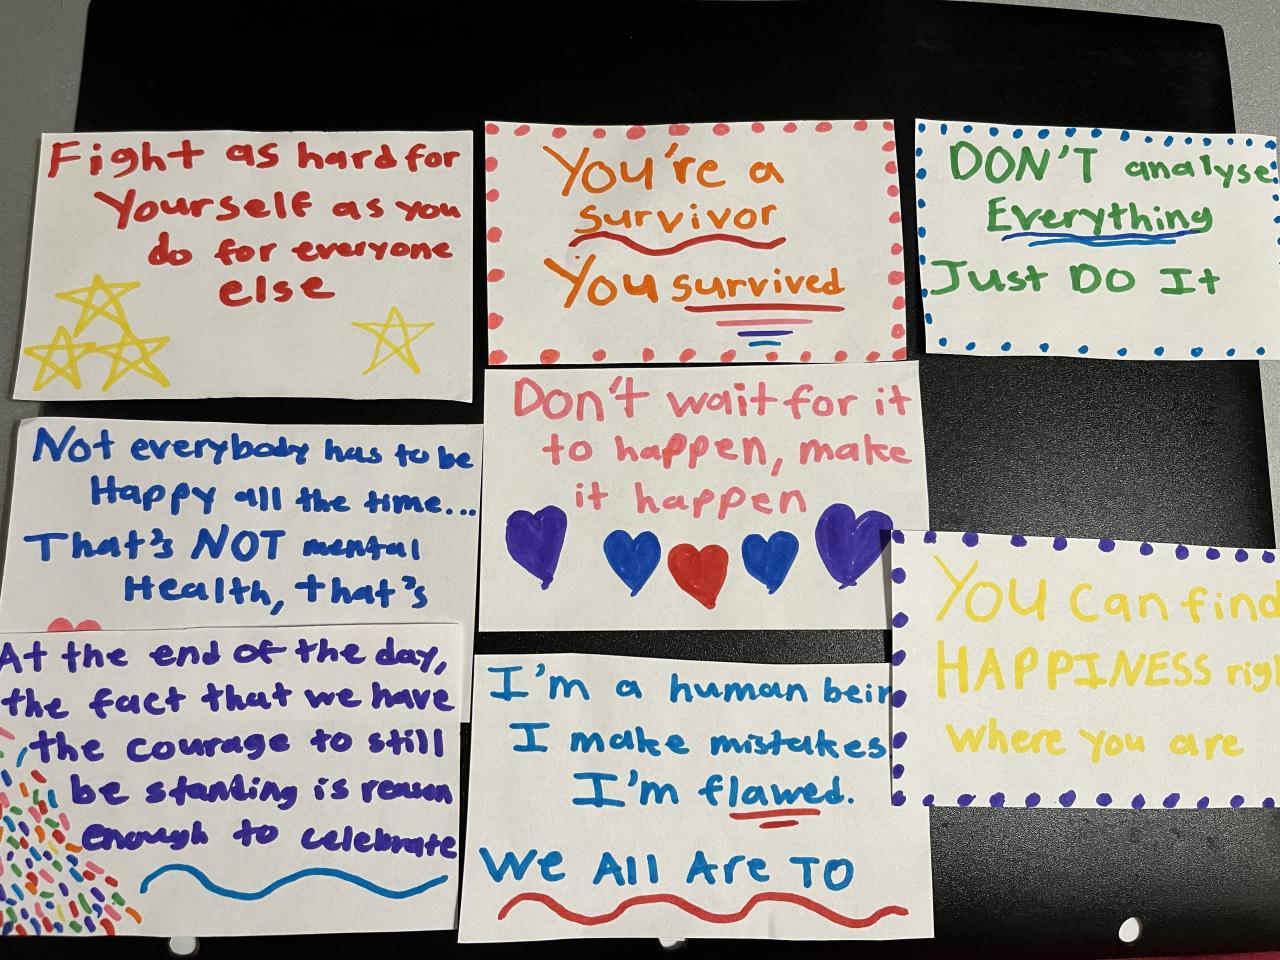 Fight as hard for
Yourself as you
do for everyone
else
You're a
survivor
You survived
DON'T analyse
Everything
Just DO It
Not everybody has to be
Happy all the time...
That's NOT mental
Health, that's
Don't wait for it
to happen, make
it happen
At the end of the day,
the fact that we have
the courage to still
be standing is reason
enough to celebrate
I'm a human bein
I make mistakes
I'm flawed.
We All Are TO
YOU Can find
HAPPINESS righ
where you are